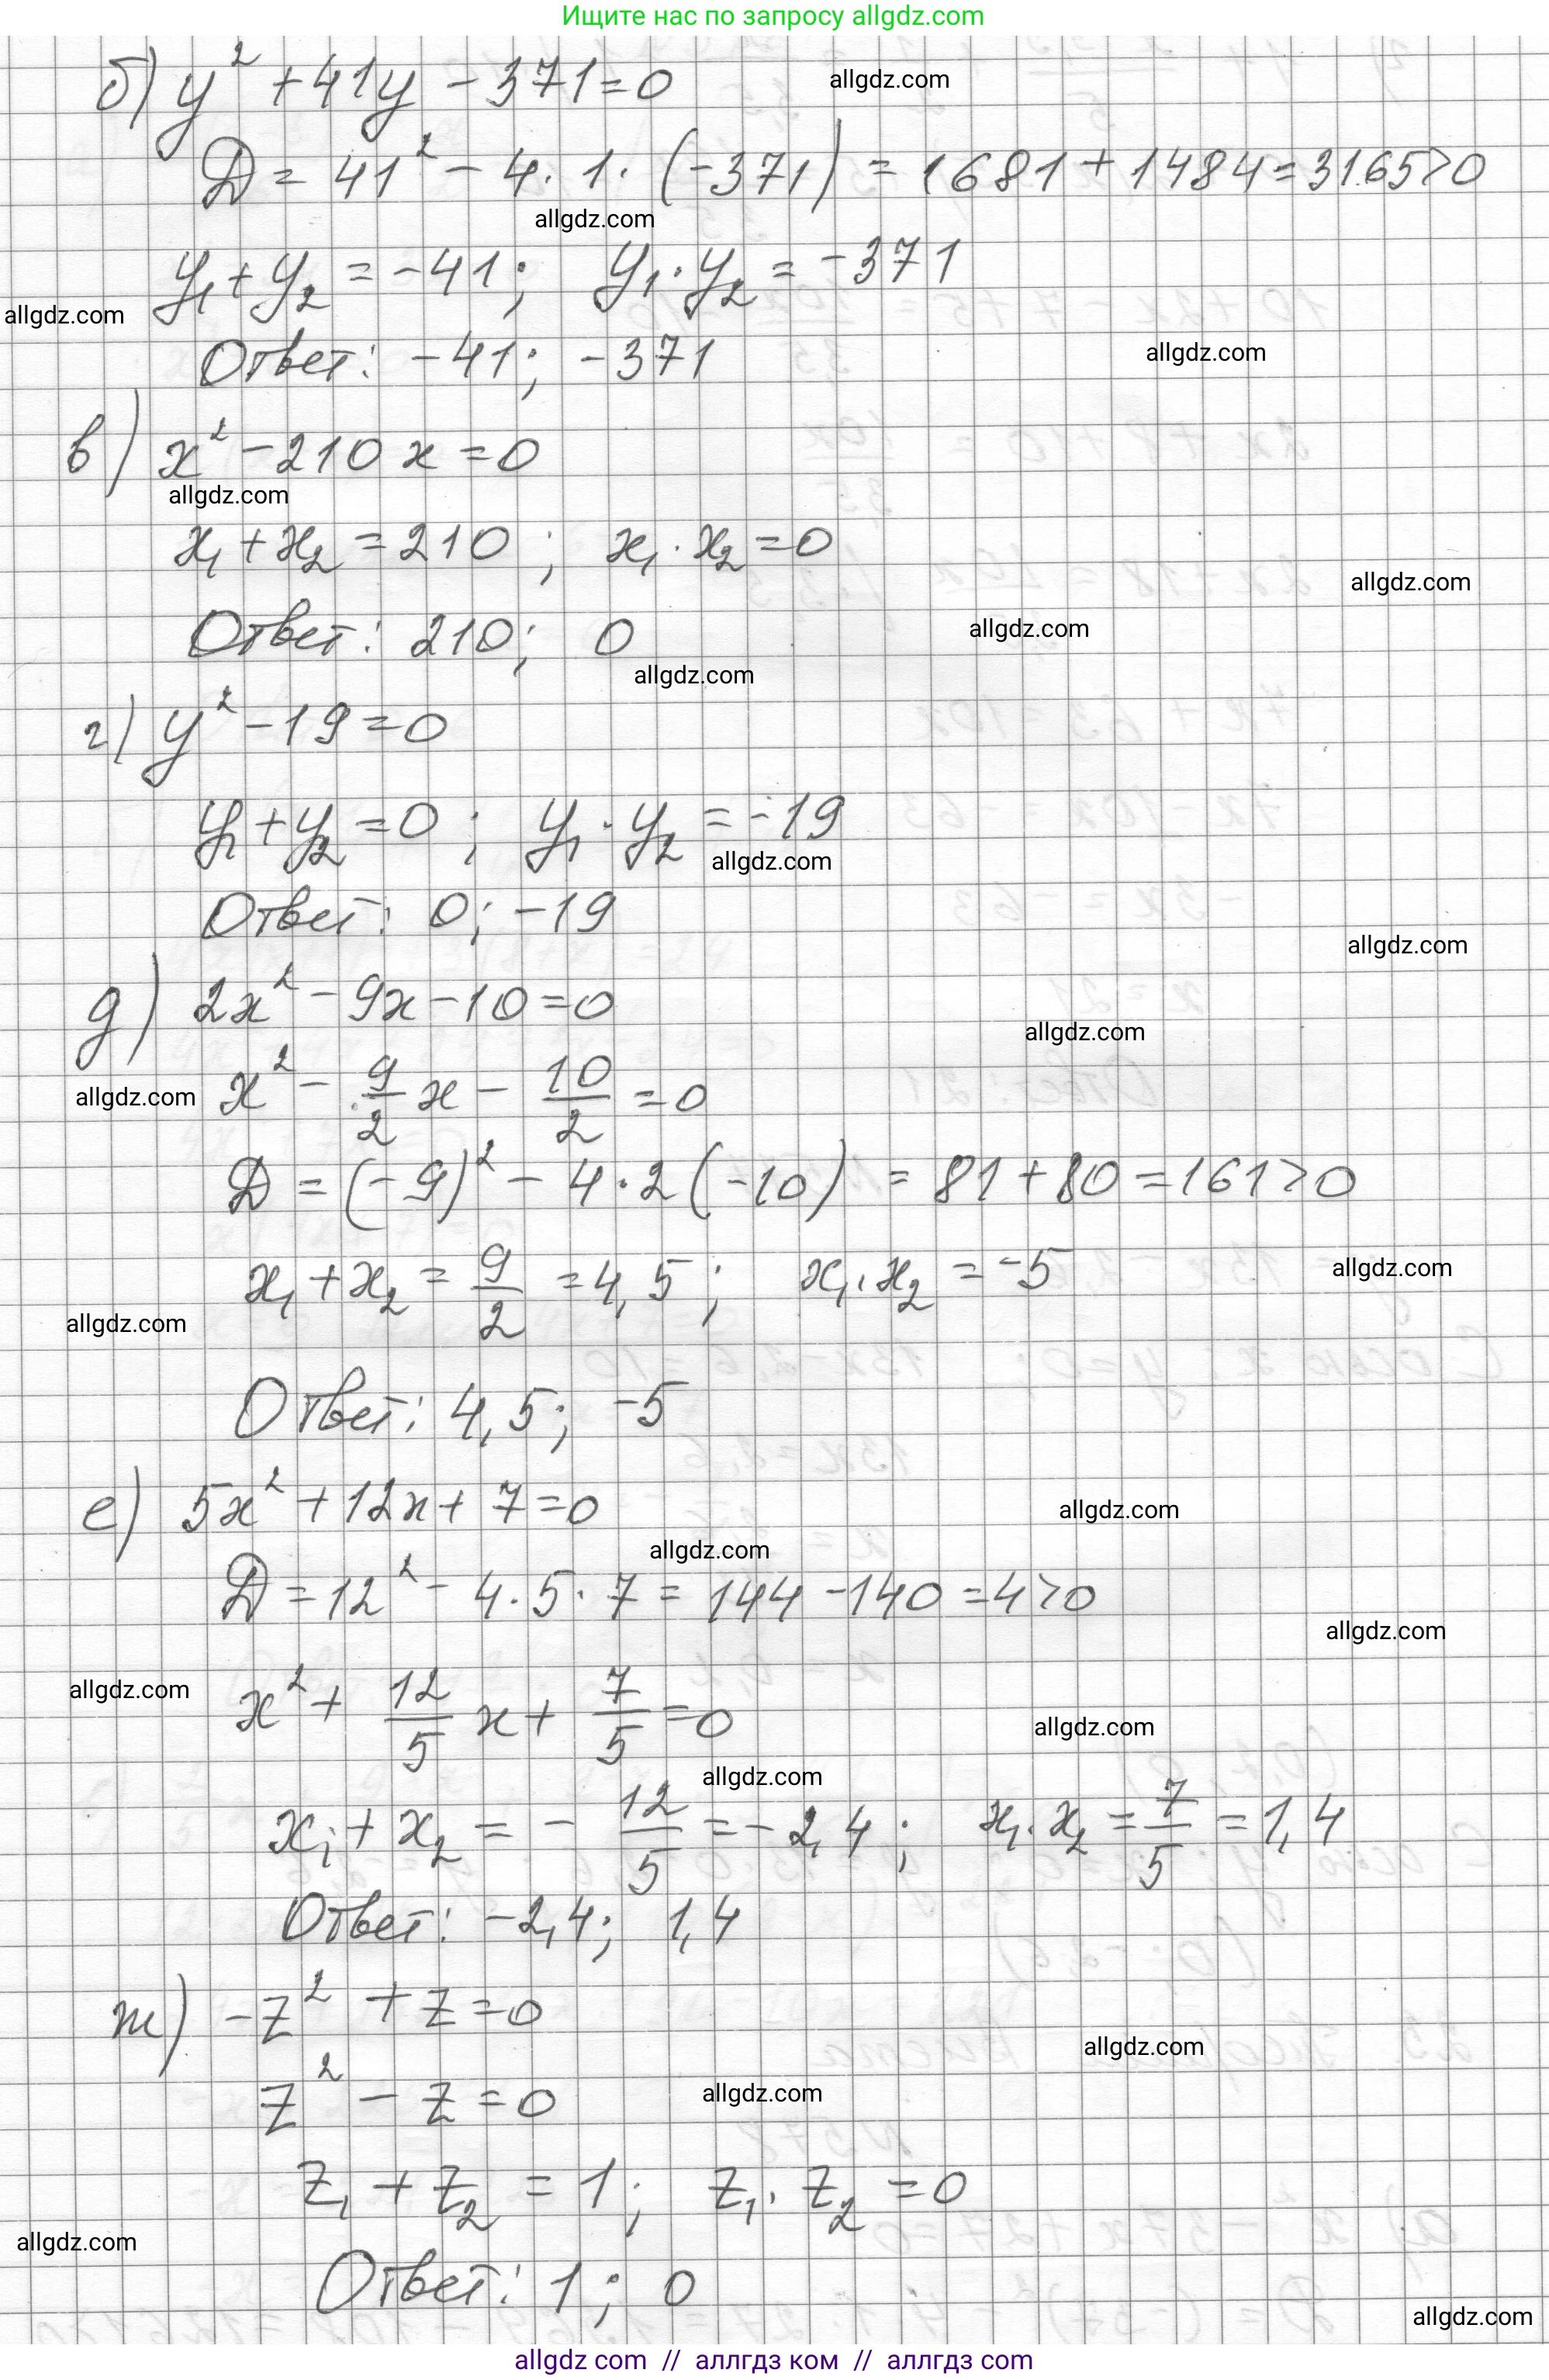 Ищите нас по запросу allgdz.com
б) y² + 41y - 371 = 0
allgdz.com
D = 41² - 4 · 1 · (-371) = 1681 + 1484 = 3165 > 0
allgdz.com
y₁ + y₂ = -41; y₁ · y₂ = -371
allgdz.com
Ответ: -41; -371
allgdz.com
в) x² - 210x = 0
allgdz.com
x₁ + x₂ = 210; x₁ · x₂ = 0
allgdz.com
Ответ: 210; 0
allgdz.com
allgdz.com
г) y² - 19 = 0
y₁ + y₂ = 0; y₁ · y₂ = -19
allgdz.com
Ответ: 0; -19
allgdz.com
д) 2x² - 9x - 10 = 0
allgdz.com
x² - 9/2 x - 10/2 = 0
allgdz.com
D = (-9)² - 4 · 2 (-10) = 81 + 80 = 161 > 0
x₁ + x₂ = 9/2 = 4,5; x₁ · x₂ = -5
allgdz.com
allgdz.com
Ответ: 4,5; -5
е) 5x² + 12x + 7 = 0
allgdz.com
allgdz.com
D = 12² - 4 · 5 · 7 = 144 - 140 = 4 > 0
allgdz.com
allgdz.com
x² + 12/5 x + 7/5 = 0
allgdz.com
allgdz.com
x₁ + x₂ = - 12/5 = -2,4; x₁ · x₂ = 7/5 = 1,4
Ответ: -2,4; 1,4
ж) -z² + z = 0
allgdz.com
z² - z = 0
allgdz.com
z₁ + z₂ = 1; z₁ · z₂ = 0
allgdz.com
Ответ: 1; 0
allgdz.com
allgdz com // аллгдз ком // аллгдз com